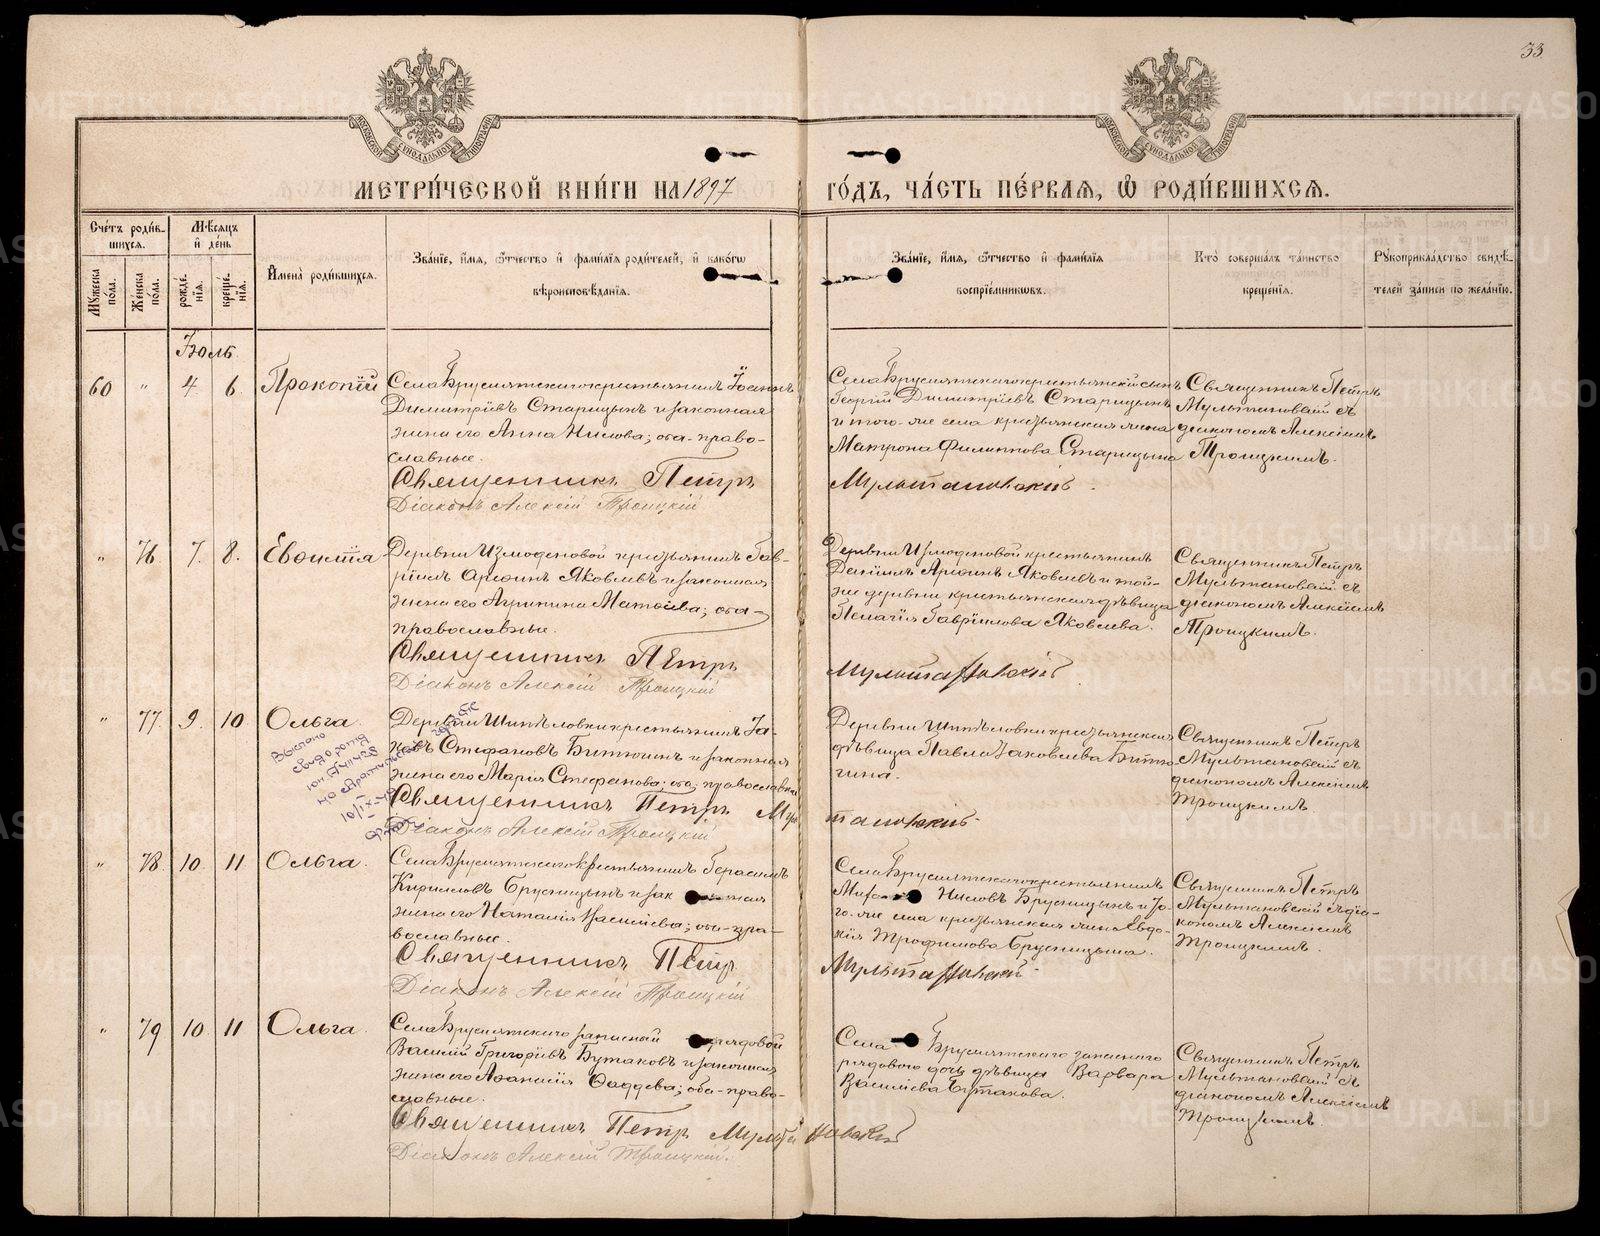 33.
МОСКОВСКОЙ СѴНОДАЛЬНОЙ ТИПОГРАФІИ
МОСКОВСКОЙ СѴНОДАЛЬНОЙ ТИПОГРАФІИ
МЕТРИ́ЧЕСКОЙ КНИ́ГИ НА 1897 ГО́ДЪ, ЧА́СТЬ ПЕ́РВАЯ, Ѡ РОДИ́ВШИХСЯ.
Сче́тъ роди́в-
шихся.
Мѣ́сяцъ
и҆ де́нь
Мꙋ́жеска
по́ла.
Же́нска
по́ла.
рожде́-
нїѧ.
креще́-
нїѧ.
И҆мена̀ роди́вшихся.
Зва́нїе, и҆́мя, ѻ҆́тчество и҆ фами́лїя роди́телей, и҆ како́гѡ
вѣроисповѣ́данїя.
Зва́нїе, и҆́мя, ѻ҆́тчество и҆ фами́лїя
воспрїе́мниковъ.
Кто̀ соверша́лъ та́инство
креще́нїя.
Рꙋкоприкла́дство свидѣ́-
телей за́писи по жела́нїю.
Іюль
60 " 4. 6. Прокопій
Села Брусянскаго крестьянинъ Іоаннъ
Димитріевъ Старицынъ и законная
жена его Анна Нилова; оба православные.
Священникъ Петръ Мультановскій
Діаконъ Алексій Троицкій
Села Брусянскаго крестьянскій сынъ
Георгій Димитріевъ Старицынъ
и того-же села крестьянская жена
Матрона Филиппова Старицына
Священникъ Петръ
Мультановскій съ
діакономъ Алексіемъ
Троицкимъ.
" 76 7. 8. Евѳимія
Деревни Измоденовой крестьянинъ Гав-
ріилъ Яковлевъ и законная
жена его Агрипина Матѳіева; оба-
православные.
Священникъ Петръ Мультановскій
Діаконъ Алексій Троицкій
Деревни Измоденовой крестьянинъ
Даніилъ Яковлевъ и той-
же деревни крестьянская дѣвица
Пелагія Гавріилова Яковлева.
Священникъ Петръ
Мультановскій съ
діакономъ Алексіемъ
Троицкимъ.
" 77 9. 10 Ольга.
Выслано
свид о рожд
10/IX-
Деревни Шипѣловки крестьянинъ Іа-
ковъ Стефановъ Битюкинъ и законная
жена его Марія Стефанова; оба православные
Священникъ Петръ Мультановскій
Діаконъ Алексій Троицкій
Деревни Шипѣловки крестьянская
дѣвица Павла Іаковлева
Священникъ Петръ
Мультановскій съ
діакономъ Алексіемъ
Троицкимъ
" 78 10. 11 Ольга.
Села Брусянскаго крестьянинъ Герасимъ
Кирилловъ Брусницынъ и зак
жена его Наталія Василіева; оба-пра-
вославные.
Священникъ Петръ Мультановскій
Діаконъ Алексій Троицкій
Села Брусянскаго крестьянинъ
Ниловъ Брусницынъ и то-
го-же села крестьянская жена Евдо-
кія Трофимова Брусницына.
Священникъ Петръ
Мультановскій съ діа-
кономъ Алексіемъ
Троицкимъ.
" 79 10 11 Ольга.
Села Брусянскаго запасный рядовой
Василій Григоріевъ Бутаковъ и законная
жена его Аѳанасія Ѳаддева; оба-право-
славные.
Священникъ Петръ Мультановскій
Діаконъ Алексій Троицкій.
Села Брусянскаго запаснаго
рядового дочь дѣвица Варвара
Василіева Бутакова.
Священникъ Петръ
Мультановскій съ
діакономъ Алексіемъ
Троицкимъ.
METRIKI.GASO-URAL.RU